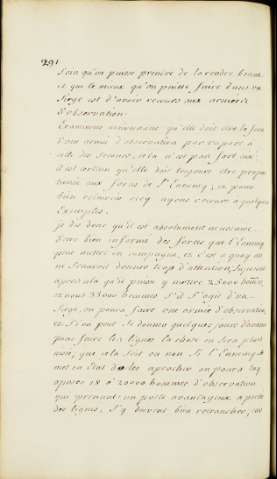 291
Soin qu'on puisse prendre de la rendre bonne
et que le mieux qu'on puisse faire dans un
Siege est d'avoir recours aux armées
d'observation.
Examinons maintenant qu'elle doit être la force
d'une armée d'observation par rapport à
celle des
il est certain qu'elle doit toujours être propor
tionnée aux forces de l'Ennemy, et pour
bien eclaircir cecy ayons recours a quelques
Exemples.
je dis donc qu'il est absolument necessaire
d'etre bien informé des forces que l'Ennemy
peut mettre en campagne, et c'est a quoy on
ne scauroit donner trop d'attention, Suposant
apres cela qu'il puisse y mettre 25000 hommes
et nous 35000 hommes S'il S'agit d'un
Siege, on poura faire une armée d'observation
et Si on peut Se donner quelques jours d'avance
pour faire les lignes la chose en Sera plus
non, que cela Soit ou non Si l'Ennemy Se
met en Etat de les aprocher on poura luy
oposer 18 a 20000 hommes d'observation
qui prenant un poste avantageux a portée
des lignes, S'y doivent bien retrancher, et